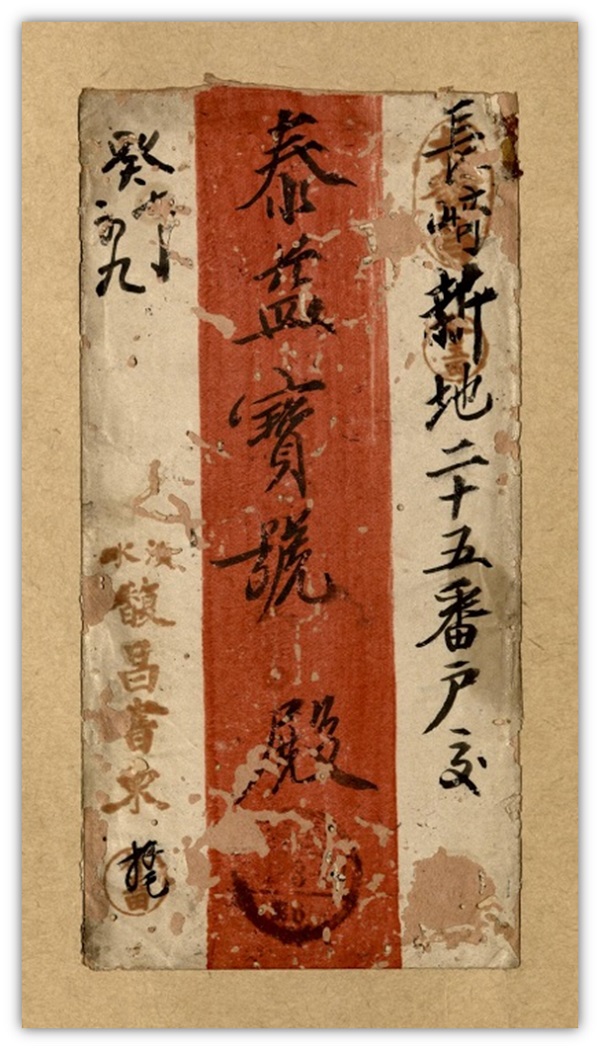 長崎新地二十五番戶交
泰益寶號殿
癸六月
初九
淡水
馥昌書柬